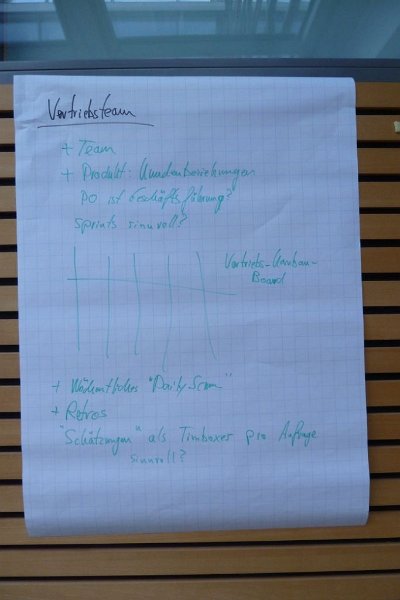 Vertriebsteam
+ Team
+ Produkt: Kundenbeziehungen
PO ist Geschäftsführung?
Sprints sinnvoll?
Vertriebs-Kanban-
Board
+ Wöchentliches "Daily Scrum"
+ Retros
"Schätzungen" als Timboxes pro Anfrage
sinnvoll?